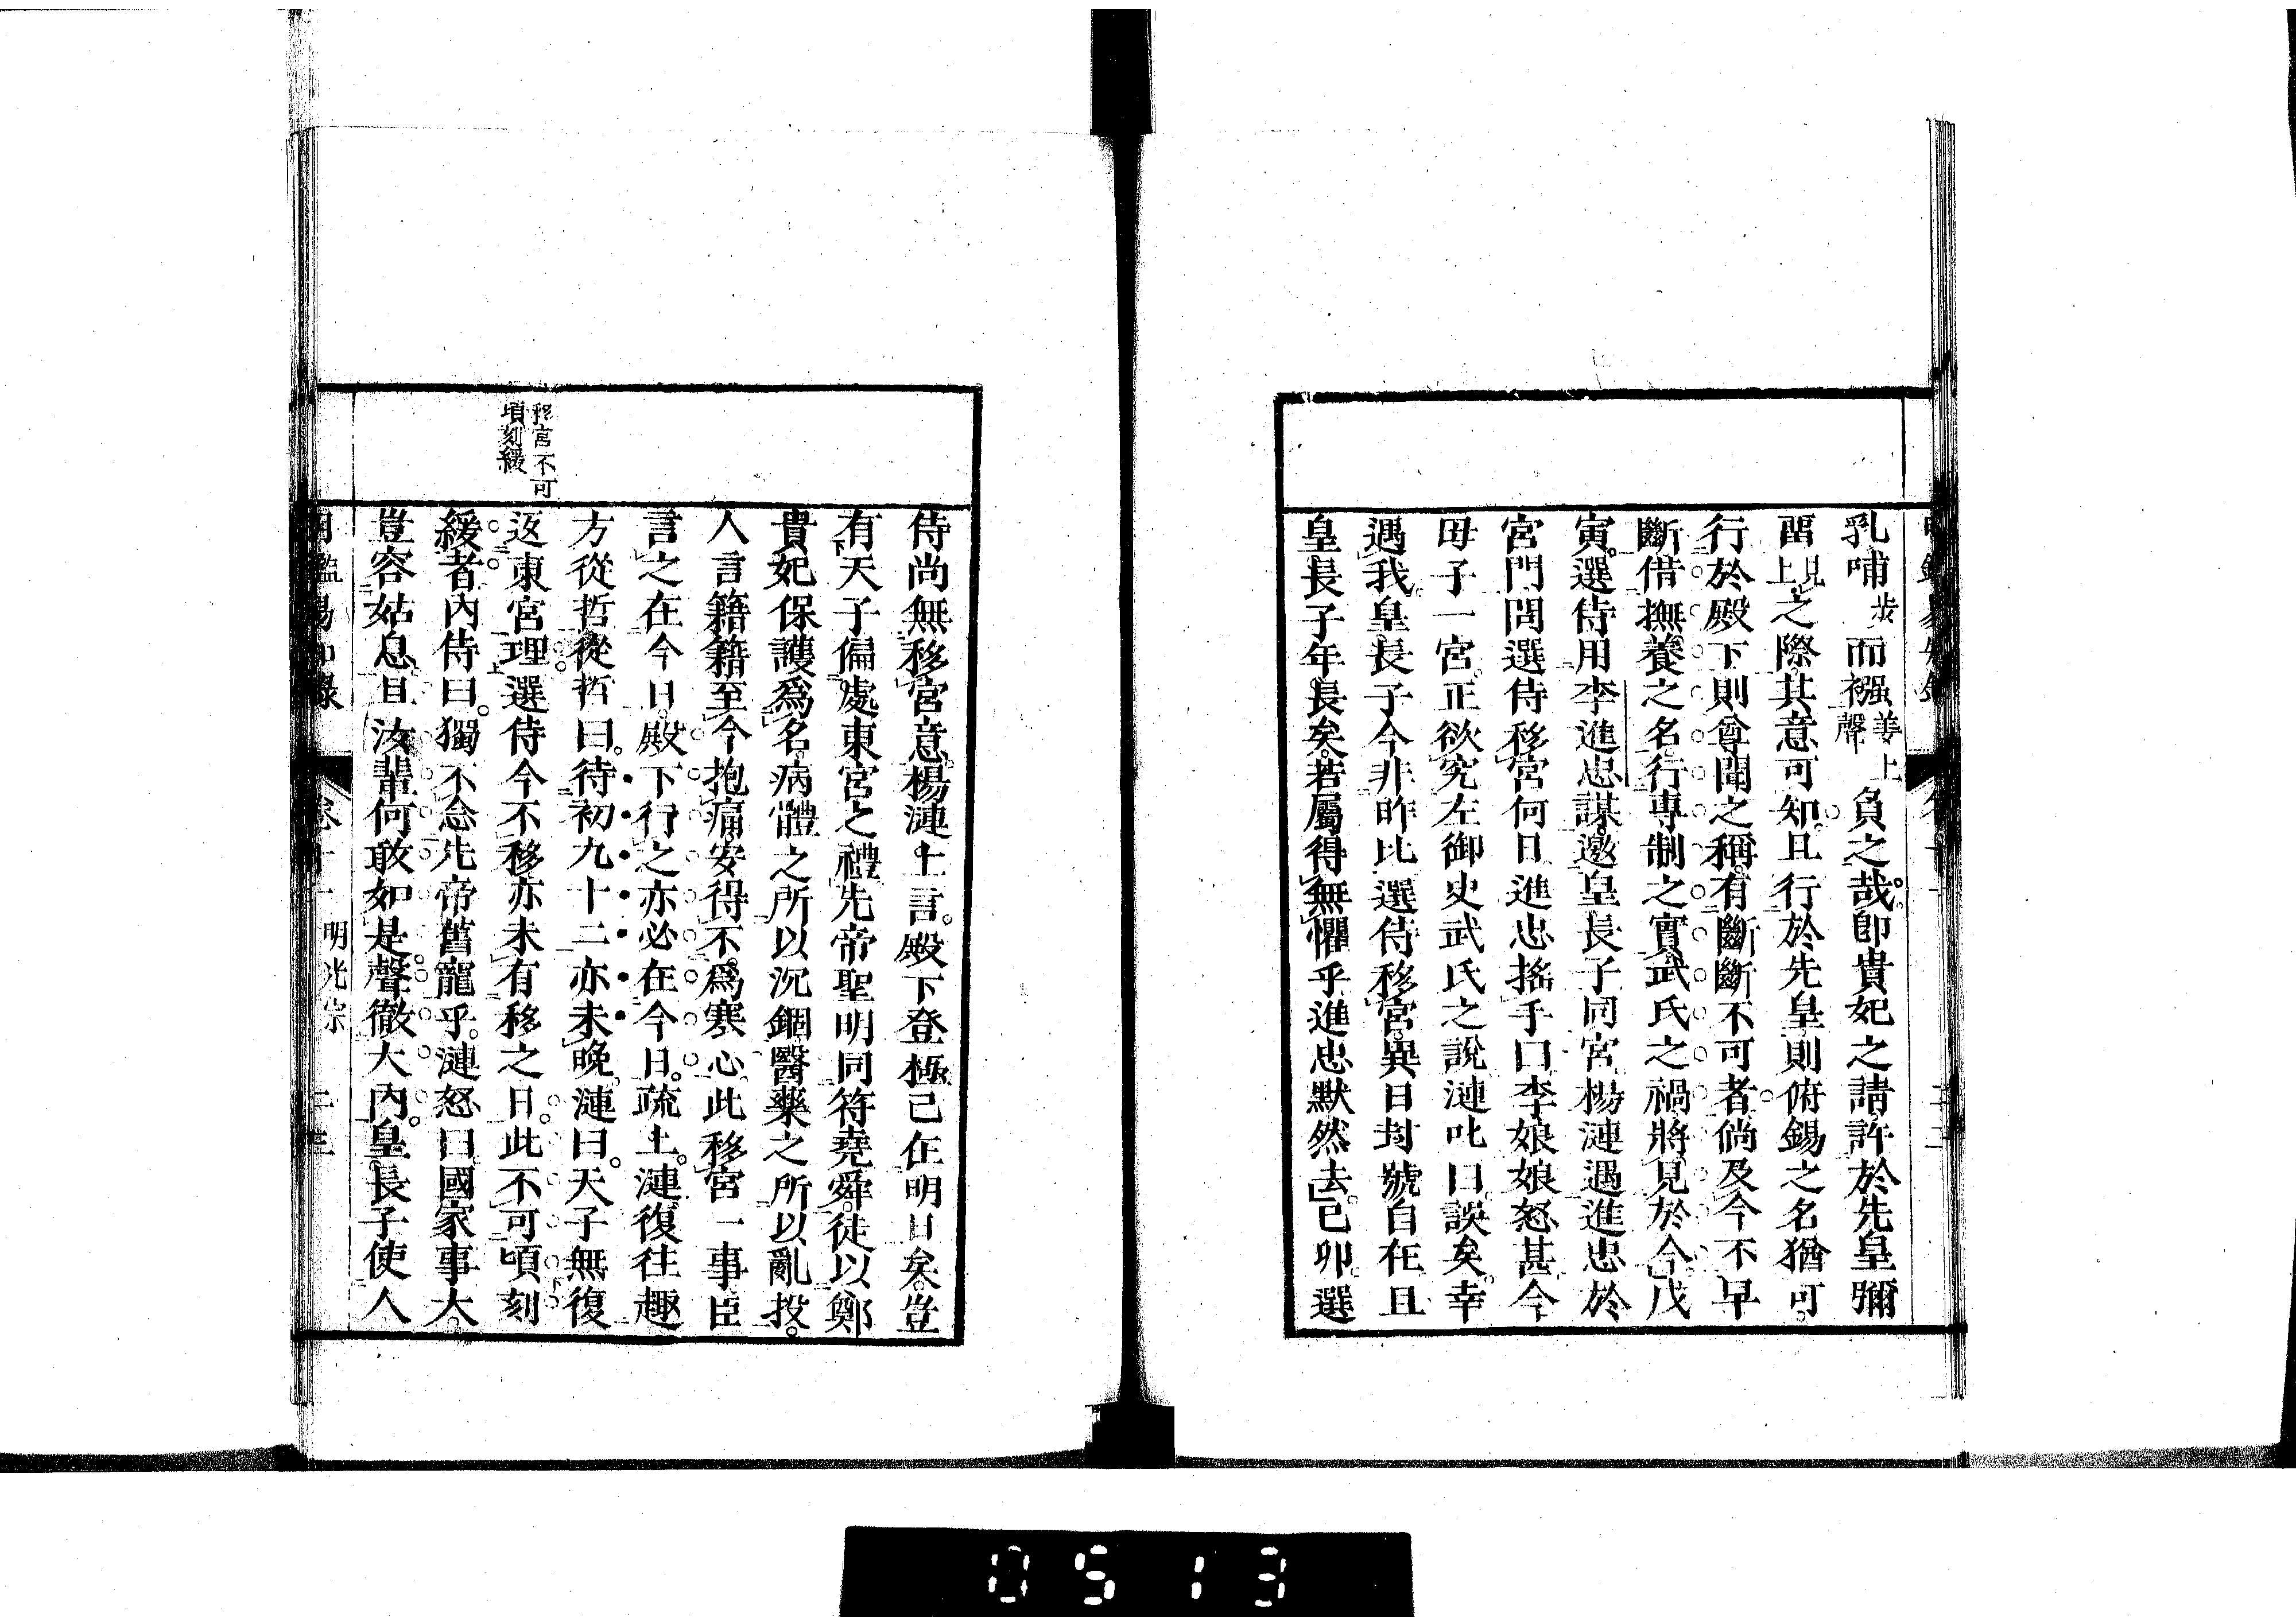 乳哺步而襁姜上聲負之哉。卽貴妃之請許於先皇彌
留見上之際。其意可知。且行於先皇則俯錫之名猶可。
行於殿下則尊聞之稱。有斷斷不可者。倘及今不早
斷。借撫養之名。行專制之實。武氏之禍將見於今。戊
寅。選侍用李進忠謀。邀皇長子同宮。楊漣遇進忠於
宮門問選侍移宮何日。進忠搖手曰李娘娘怒甚。今
母子一宮。正欲究左御史武氏之說。漣叱曰。誤矣。幸
遇我。皇長子今非昨比。選侍移宮。異日封號自在。且
皇長子年長矣。若屬得無懼乎。進忠默然去。己卯。選
侍尚無移宮意。楊漣上言。殿下登極已在明日矣。豈
有天子偏處東宮之禮。先帝聖明同符堯舜。徒以鄭
貴妃保護爲名。病體之所以沉錮。醫藥之所以亂投。
人言籍籍。至今抱痛。安得不爲寒心。此移宮一事。臣
言之在今日。殿下行之亦必在今日。疏上。漣復往趣
方從哲。從哲曰。待初九十二亦未晚。漣曰。天子無復
返東宮理。選侍今不移。亦未有移之日。此不可頃刻
緩者。內侍曰。獨不念先帝舊寵乎。漣怒曰。國家事大。
豈容姑息。且汝輩何敢如是。聲徹大內。皇長子使人
移宮不可
頃刻緩
明光宗
二三
0513